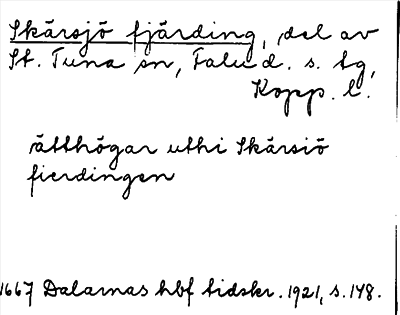 Skärsjö fjärding, del av
St. Tuna sn, Falu d. s. tg,
Kopp. l.
ätthögar uthi Skärsiö
fierdingen
1667 Dalarnas hbf tidskr. 1921, s. 148.